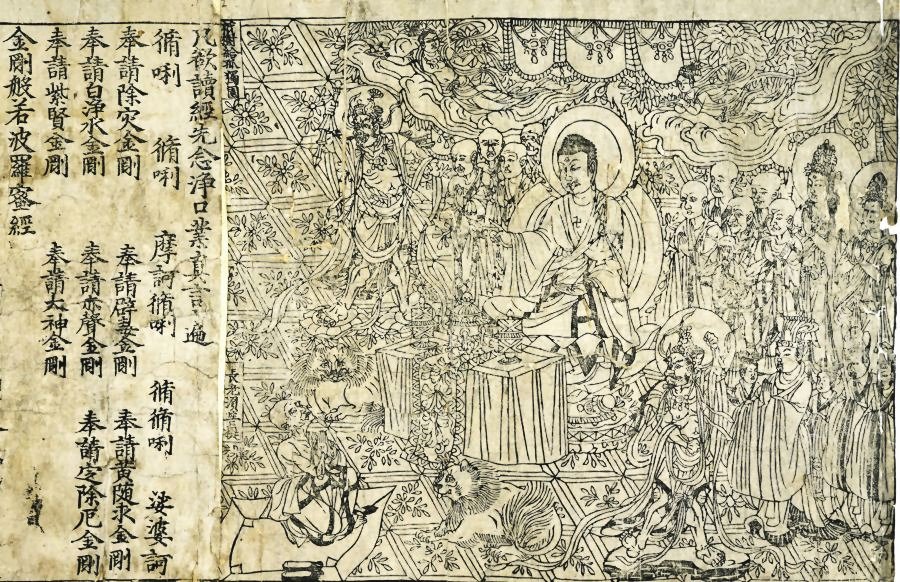 祇樹給孤獨園
長老須菩提
凡欲讀經先念淨口業真言一遍
脩唎 脩唎 摩訶脩唎 脩脩唎 娑婆訶
奉請除灾金剛 奉請辟毒金剛 奉請黃随求金剛
奉請白淨水金剛 奉請赤聲金剛 奉請定除厄金剛
奉請紫賢金剛 奉請大神金剛
金剛般若波羅蜜經